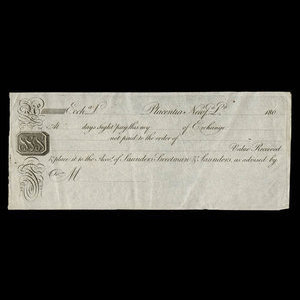 Exch. Placentia Newf. 180
At days Sight pay this my of Exchange
not paid to the order of
Value Received
& place it to the Acct. of Saunders, Sweetman & Saunders, as advised by
To M
SSS